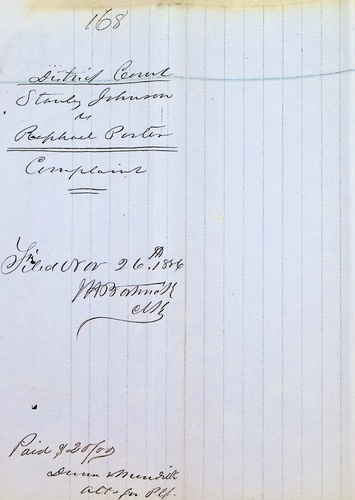 168
District Court
Stanly Johnson
vs
Raphael Porter
Complaint
Filed Nov 26th 1856
Clk
Paid $20/00
Attys for Plf.